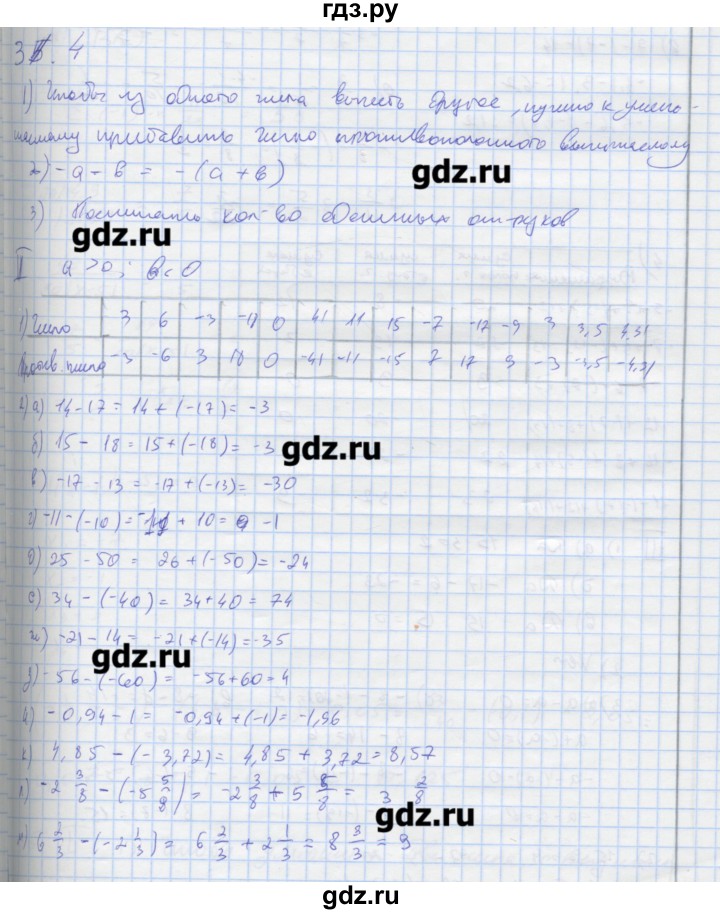 гдз.ру
3. 4
1) Чтобы из одного числа вычесть другое, нужно к умень-
шаемому прибавить число противоположного вычитаемому
2) -a - b = -(a + b)
gdz.ru
3) Посчитать кол-во единичных от-рузков
gdz.ru
II a > 0; b < 0
1) Число 3 6 -3 -18 0 41 11 15 -7 -17 -9 3 3,5 4,31
числа -3 -6 3 18 0 -41 -11 -15 7 17 9 -3 -3,5 -4,31
2) а) 14 - 17 = 14 + (-17) = -3
б) 15 - 18 = 15 + (-18) = -3
gdz.ru
в) -17 - 13 = -17 + (-13) = -30
г) -11 - (-10) = + 10 = -1
д) 25 - 50 = 26 + (-50) = -24
е) 34 - (-40) = 34 + 40 = 74
ж) -21 - 14 = -21 + (-14) = -35
gdz.ru
з) -56 - (-60) = -56 + 60 = 4
и) -0,94 - 1 = -0,94 + (-1) = -1,96
к) 4,85 - (-3,72) = 4,85 + 3,72 = 8,57
л) -2 3/8 - (-5 5/8) = -2 3/8 + 5 5/8 = 3 2/8
gdz.ru
м) 6 2/3 - (-2 1/3) = 6 2/3 + 2 1/3 = 8 3/3 = 9
gdz.ru